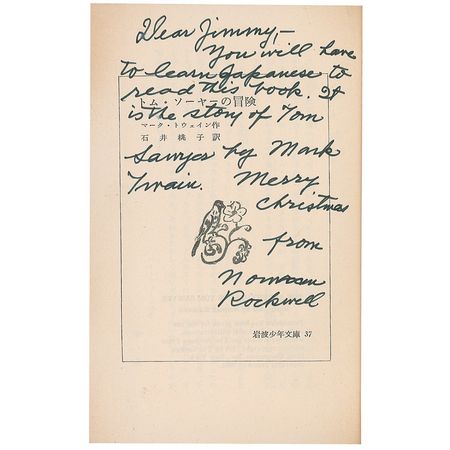 Dear Jimmy,—
You will have
to learn Japanese to
read this book. It
トム・ソーヤーの冒険
is the story of Tom
マーク・トウェイン作
石井桃子訳
Sawyer by Mark
Twain. Merry
Christmas
from
Norman
Rockwell
岩波少年文庫 37